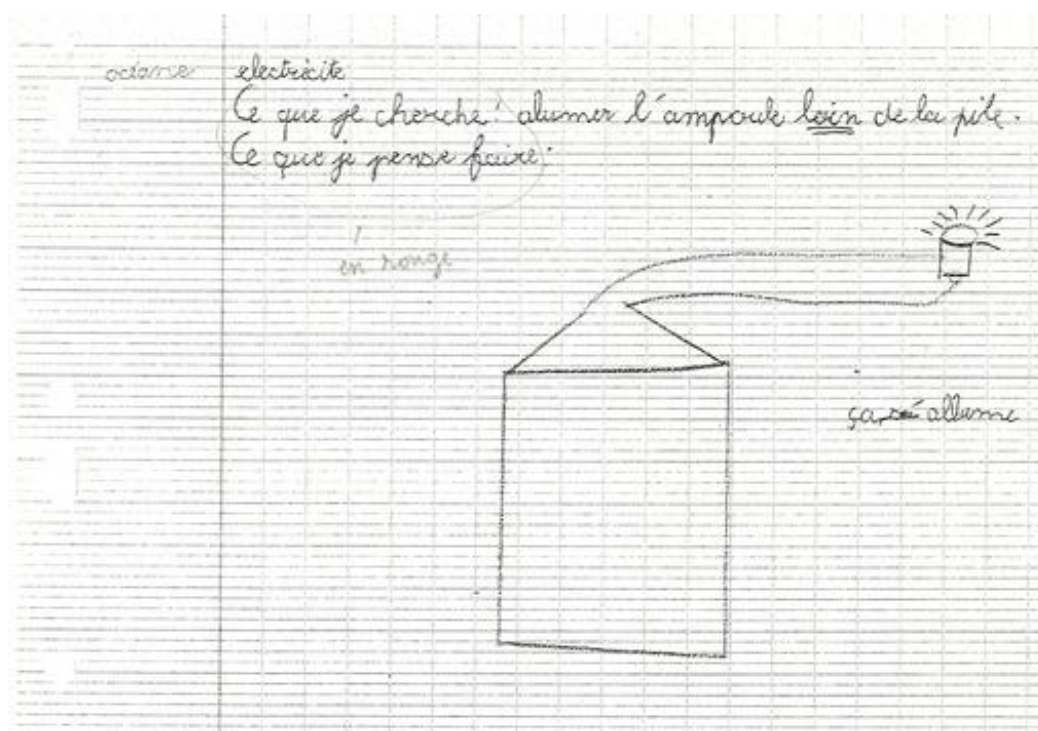 octavie electricite
Ce que je cherche : alumer l'ampoule loin de la pile.
Ce que je pense faire :
en rouge
ça allume